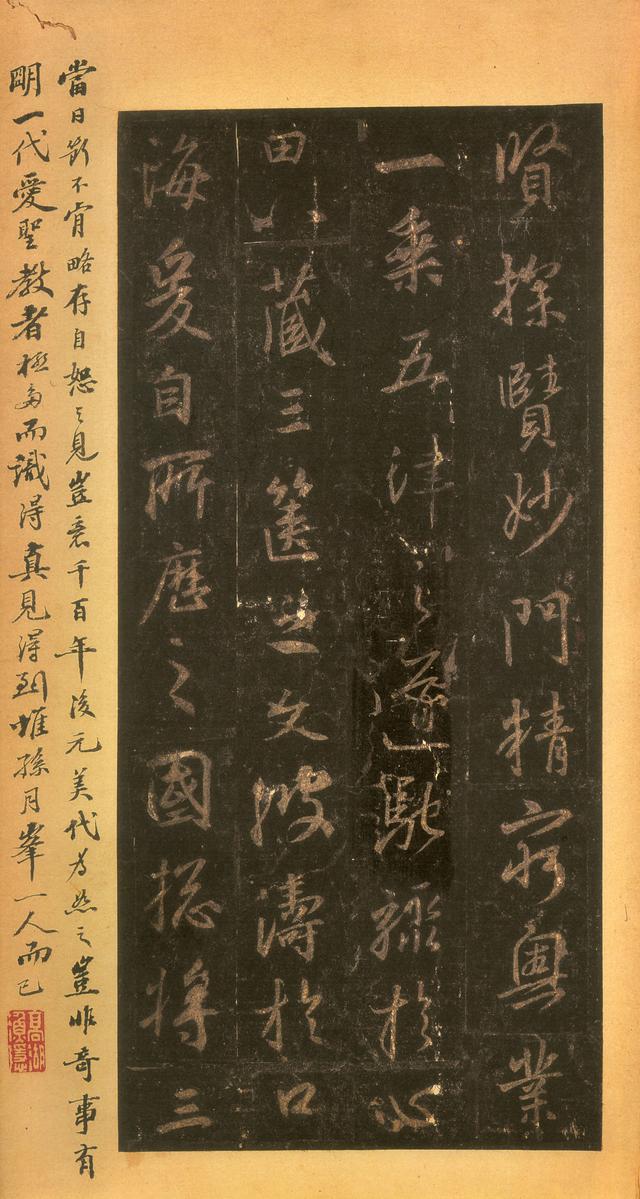 賢探賾妙門精窮奧業
一乘五律之道馳驟於心
田八藏三篋之文波濤於口
海爰自所歷之國摠將三
當日斷不肯略存自恕之見豈意千百年後元美代為恕之豈非奇事有
明一代愛聖教者極多而識得真見得到惟孫月峯一人而已